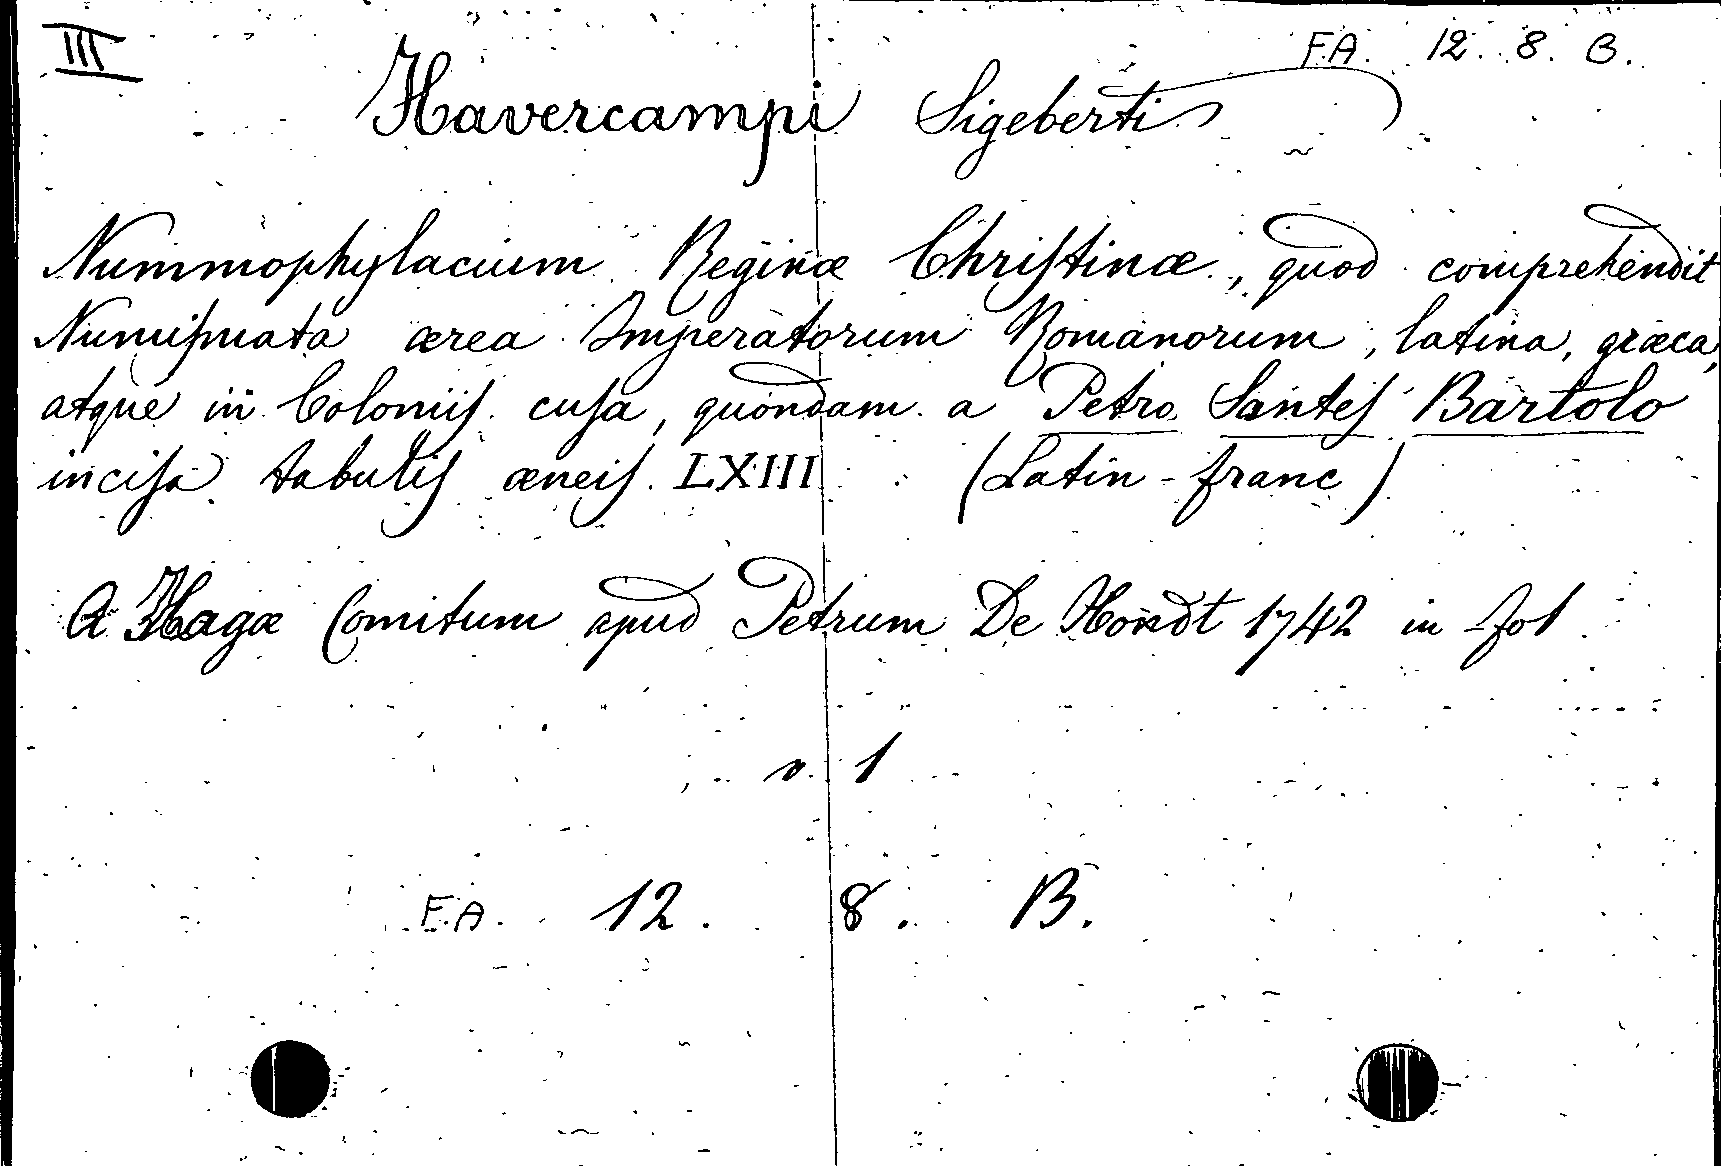 III
F.A. 12. 8. B.
Havercampi Sigeberti
Nummophylacium Reginæ Chriſtinæ, quod comprehendit
Numiſmata ærea Imperatorum Romanorum, latina, græca,
atque in Coloniiſ cuſa, quondam a Petro Santeſ Bartolo
inciſa tabuliſ æneiſ. LXIII (Latin-franc)
A Hagæ Comitum apud Petrum De Hondt 1742 in fol
v. 1
F.A. 12. 8. B.